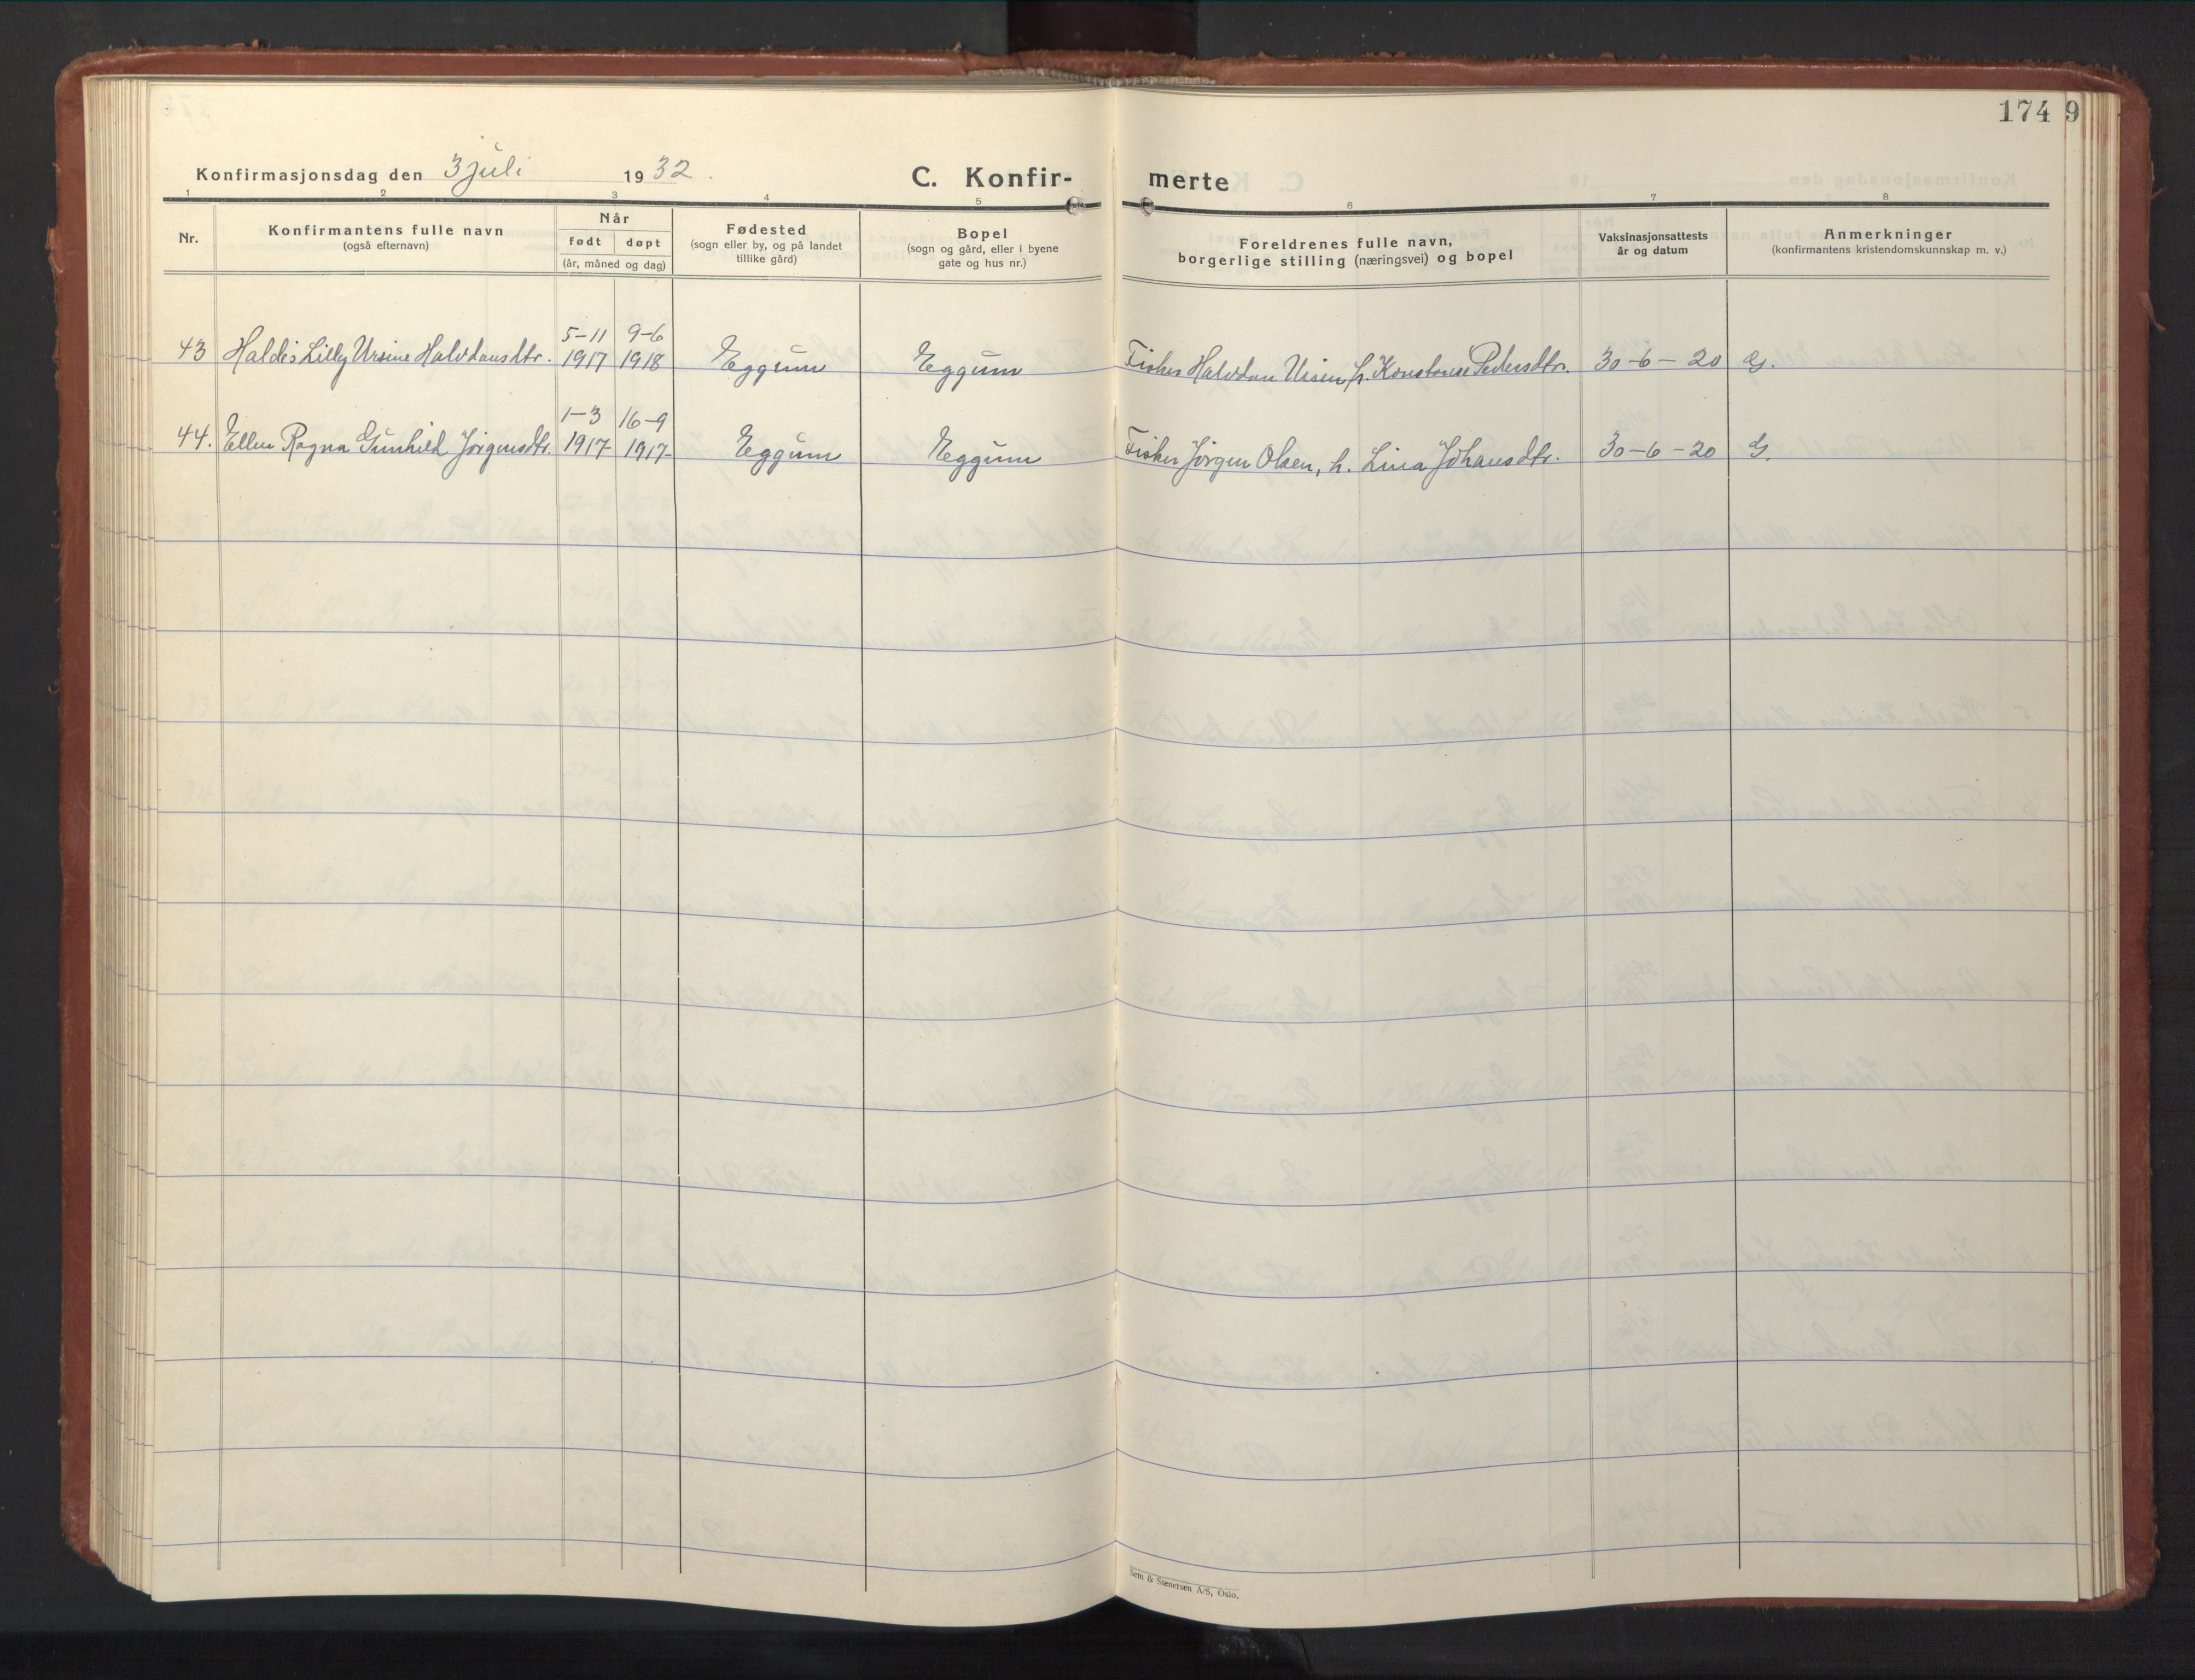 174 9
Konfirmasjonsdag den 3 juli 1932.
C. Konfir- merte
1 2 3 4 5 6 7 8
Nr.
Konfirmantens fulle navn
(også efternavn)
Når
født døpt
(år, måned og dag)
Fødested
(sogn eller by, og på landet
tillike gård)
Bopel
(sogn og gård, eller i byene
gate og hus nr.)
Foreldrenes fulle navn,
borgerlige stilling (næringsvei) og bopel
Vaksinasjonsattests
år og datum
Anmerkninger
(konfirmantens kristendomskunnskap m. v.)
5-11 9-6
43 Haldis Lilly Ursine Halvdansdtr. 1917 1918 Eggum Eggum Fisker Halvdan Ursin, h. Konstanse Pedersdtr. 30-6-20 G.
1-3 16-9
44. Ellen Ragna Gunhild Jørgensdtr. 1917 1917 Eggum Eggum Fisker Jörgen Olsen, h. Lina Johansdtr. 30-6-20 G.
Sem & Stenersen A/S, Oslo.